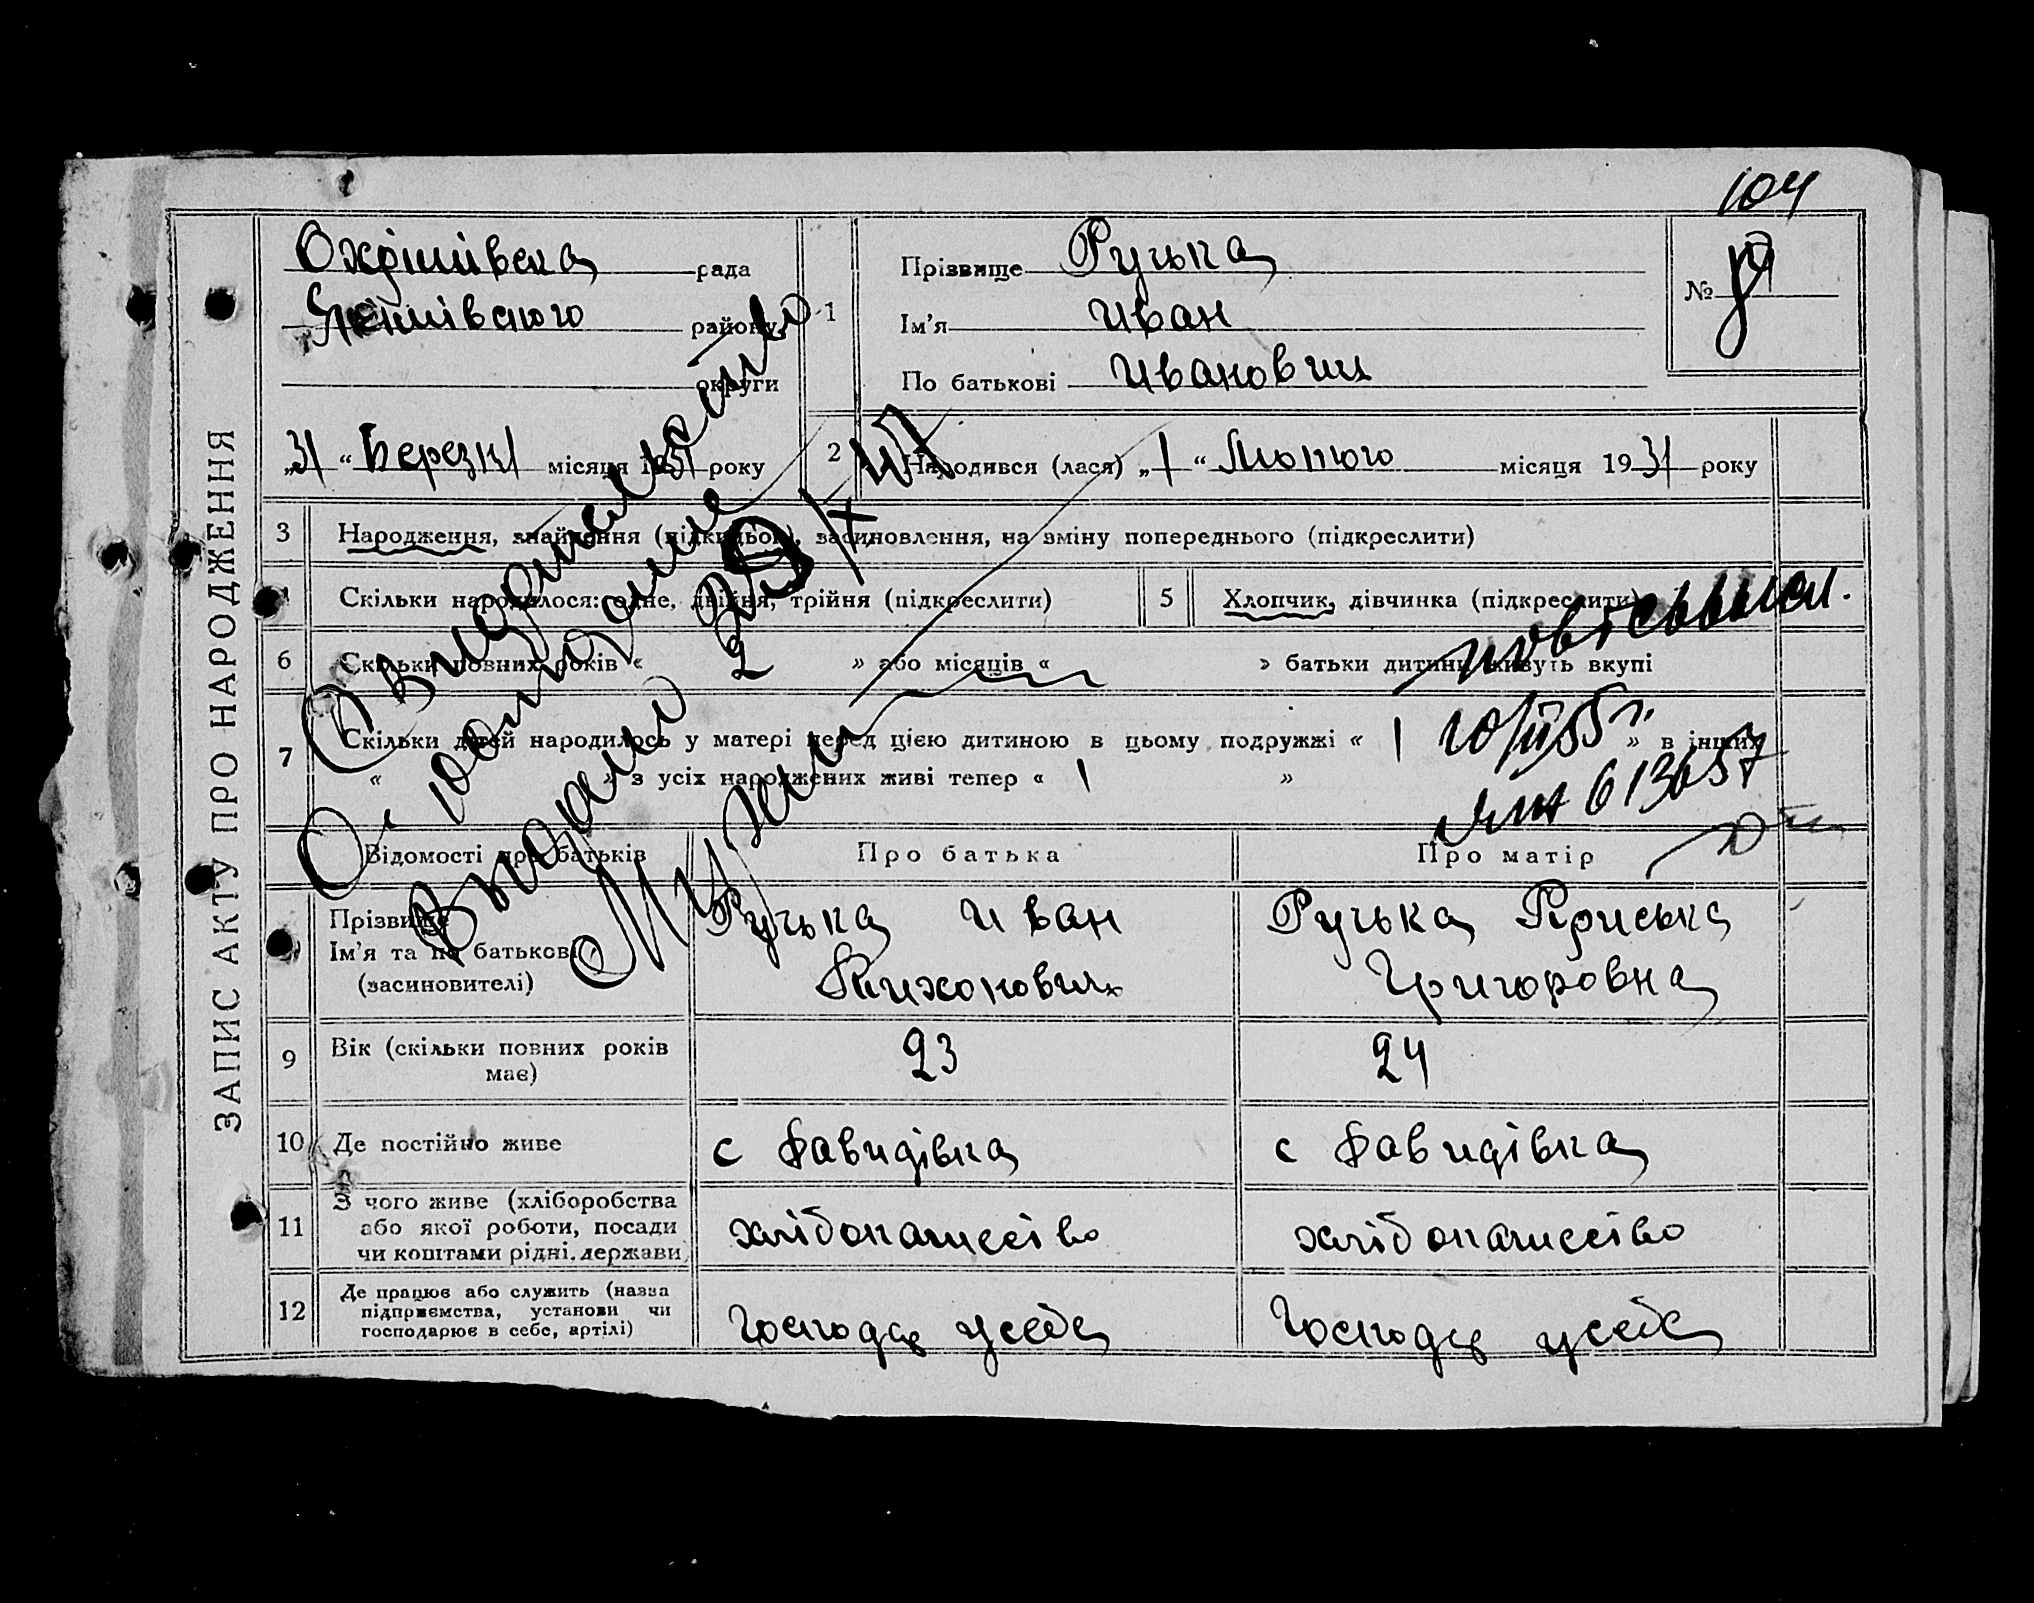 104
ЗАПИС АКТУ ПРО НАРОДЖЕННЯ
Охрімівска рада
району
округи
1
Прізвище Руцька
Ім'я Иван
По батькові Иванович
№
„31“ Березня місяця 1931 року
2 Народився (лася) „1“ Лютого місяця 1931 року
3 Народження, знайдення (підкидьок), засиновлення, на зміну попереднього (підкреслити)
4 Скільки народилося: одне, двійня, трійня (підкреслити)
5 Хлопчик, дівчинка (підкреслити)
6 Скільки повних років « » або місяців « » батьки дитини живуть вкупі
7 Скільки дітей народилось у матері перед цією дитиною в цьому подружжі « 1 » в інших
« » з усіх народжених живі тепер « 1 »
Свидетельство
о рождении
Выдано
повт свыдел.
10/III 55 г.
613657
Відомості про батьків
Про батька
Про матір
Прізвище
Ім'я та по батькові
(засиновителі)
Руцька Иван
Тихонович
Руцька Пріська
Григоровна
9 Вік (скільки повних років
має)
23
24
10 Де постійно живе
с Давидівка
с Давидівка
11 З чого живе (хліборобства
або якої роботи, посади
чи коштами рідні, держави)
хлібопашество
хлібопашество
12 Де працює або служить (назва
підприємства, установи чи
господарює в себе, артілі)
Господар усебе
Господар усебе